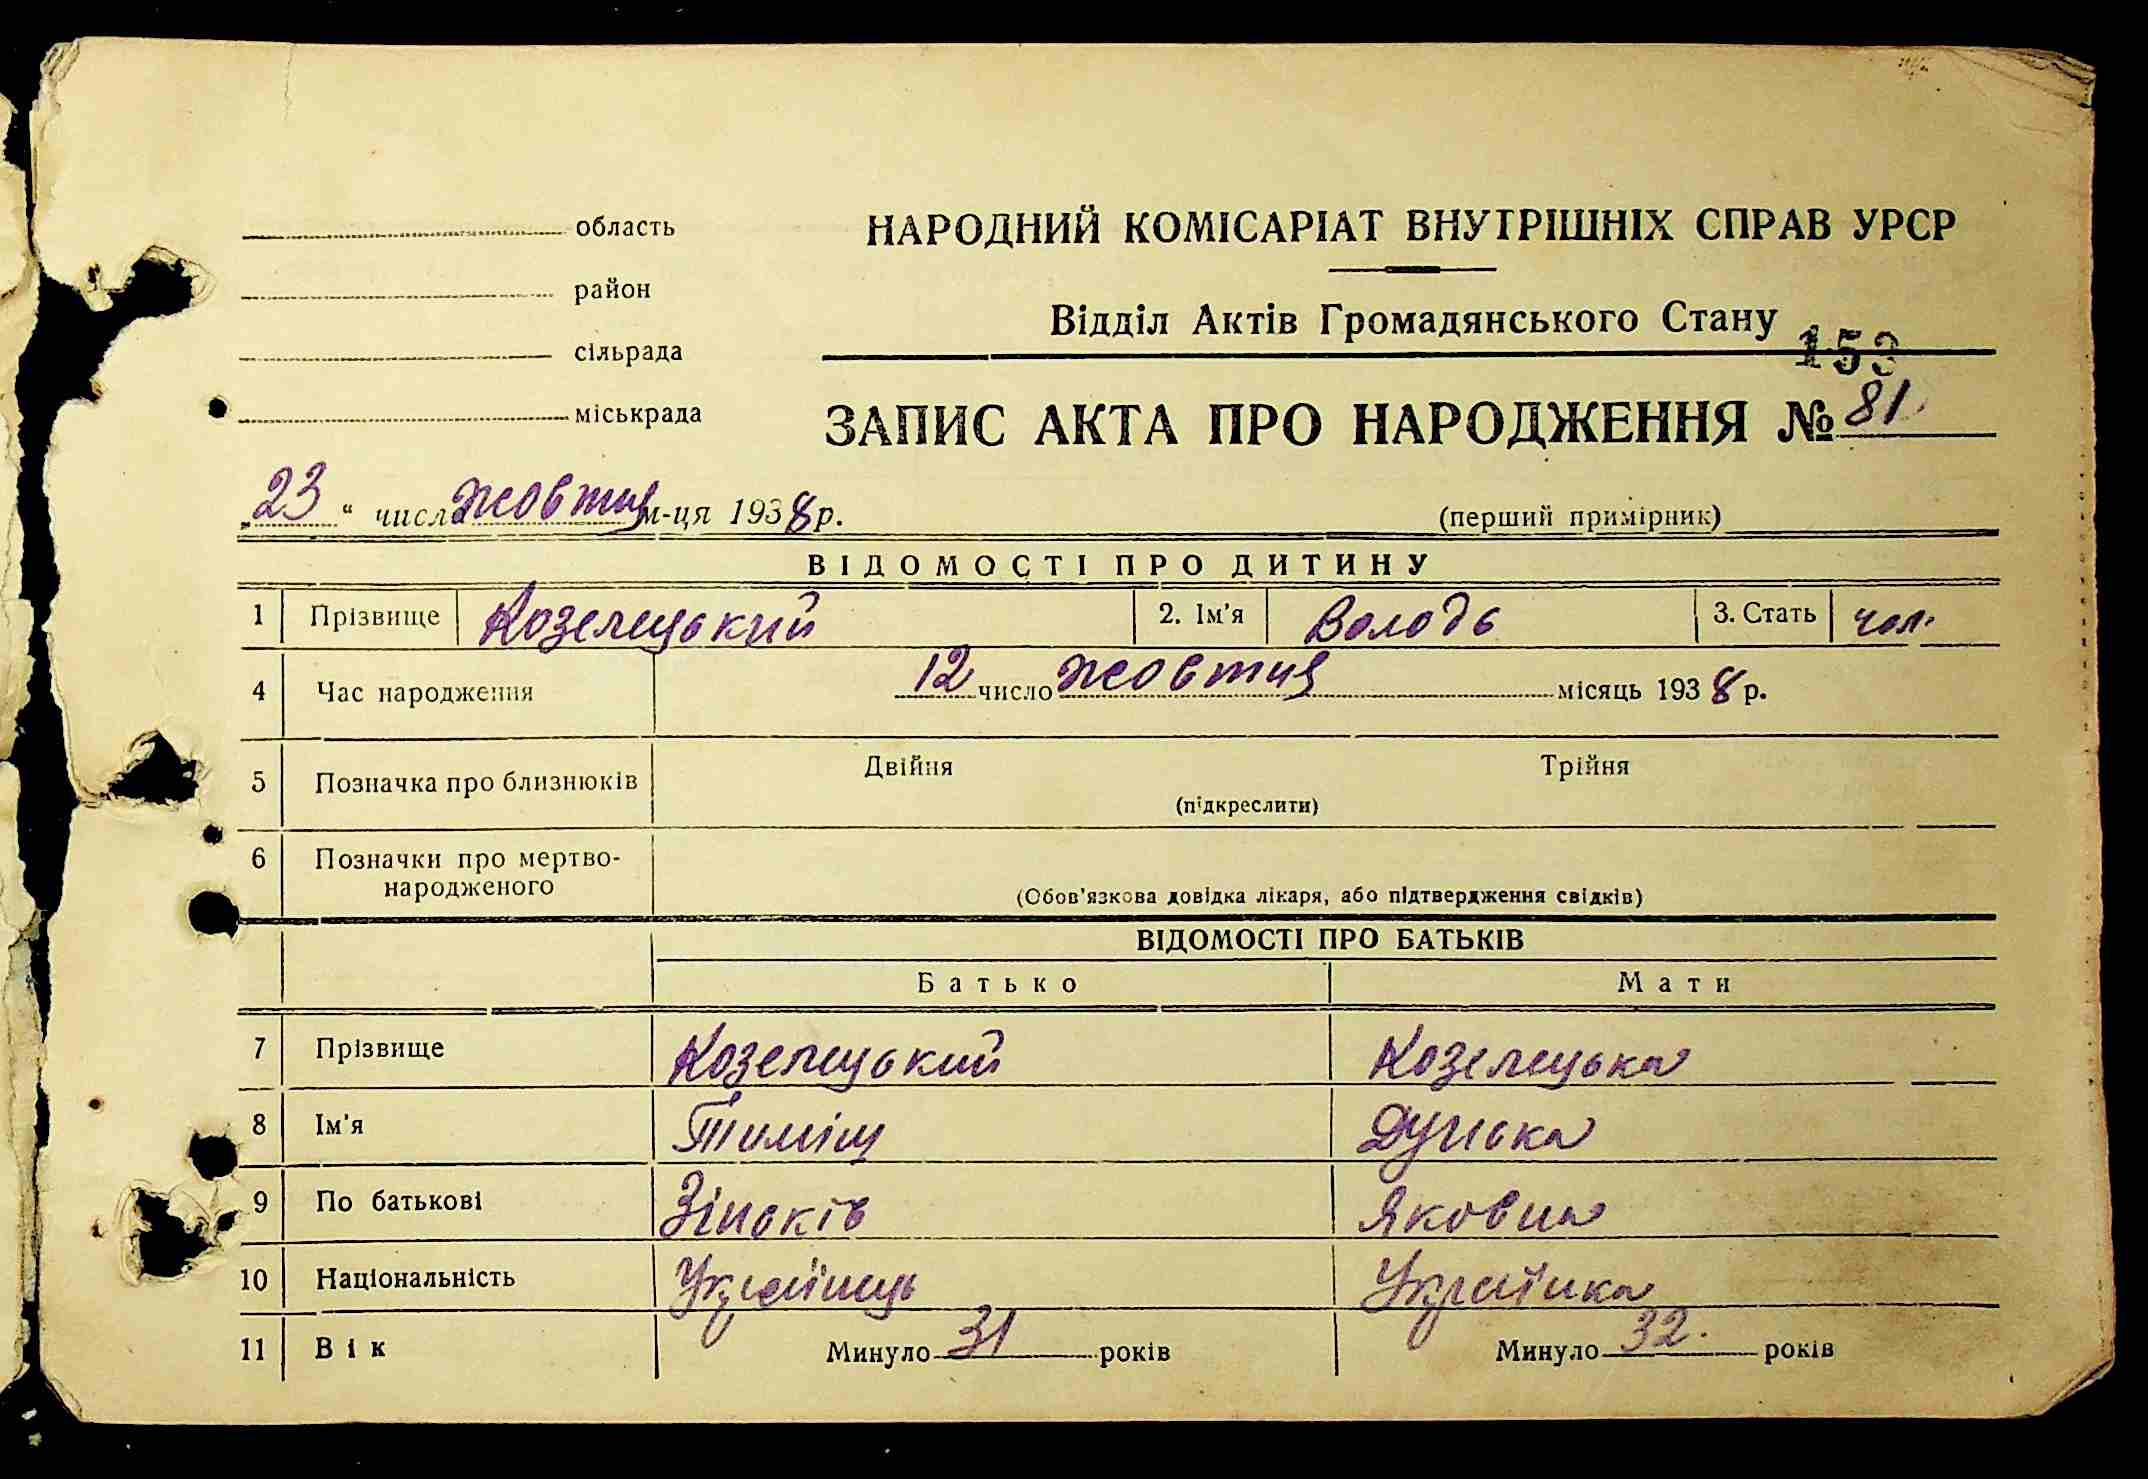 область
район
сільрада
міськрада
НАРОДНИЙ КОМІСАРІАТ ВНУТРІШНІХ СПРАВ УРСР
Відділ Актів Громадянського Стану
153
ЗАПИС АКТА ПРО НАРОДЖЕННЯ № 81
„23“ числа жовтня м-ця 1938 р.
(перший примірник)
ВІДОМОСТІ ПРО ДИТИНУ
1 Прізвище Козелецький 2. Ім'я Володь 3. Стать чол.
4 Час народження 12 число жовтня місяць 1938 р.
5 Позначка про близнюків Двійня Трійня
(підкреслити)
6 Позначки про мертво-
народженого
(Обов'язкова довідка лікаря, або підтвердження свідків)
ВІДОМОСТІ ПРО БАТЬКІВ
Батько Мати
7 Прізвище Козелецький Козелецька
8 Ім'я Тиміш Дунька
9 По батькові Зіньків Яковна
10 Національність Українець Українка
11 Вік Минуло 31 років Минуло 32. років